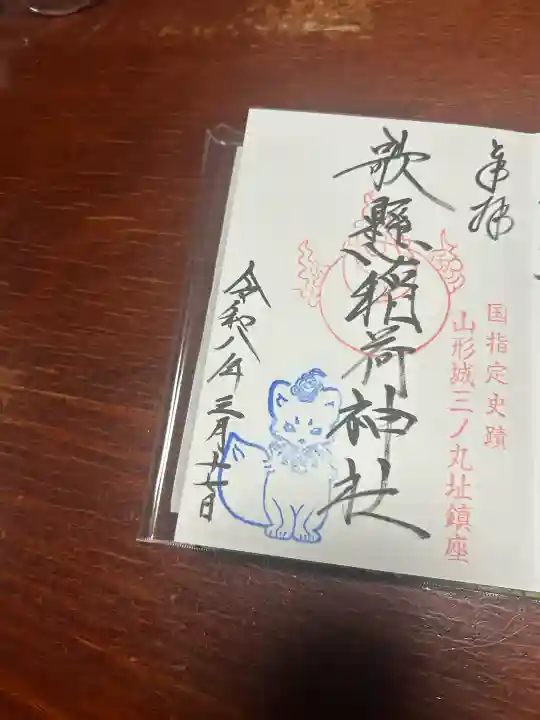 奉拝
国指定史蹟
山形城三ノ丸址鎮座
歌懸稲荷神社
令和八年三月廿一日